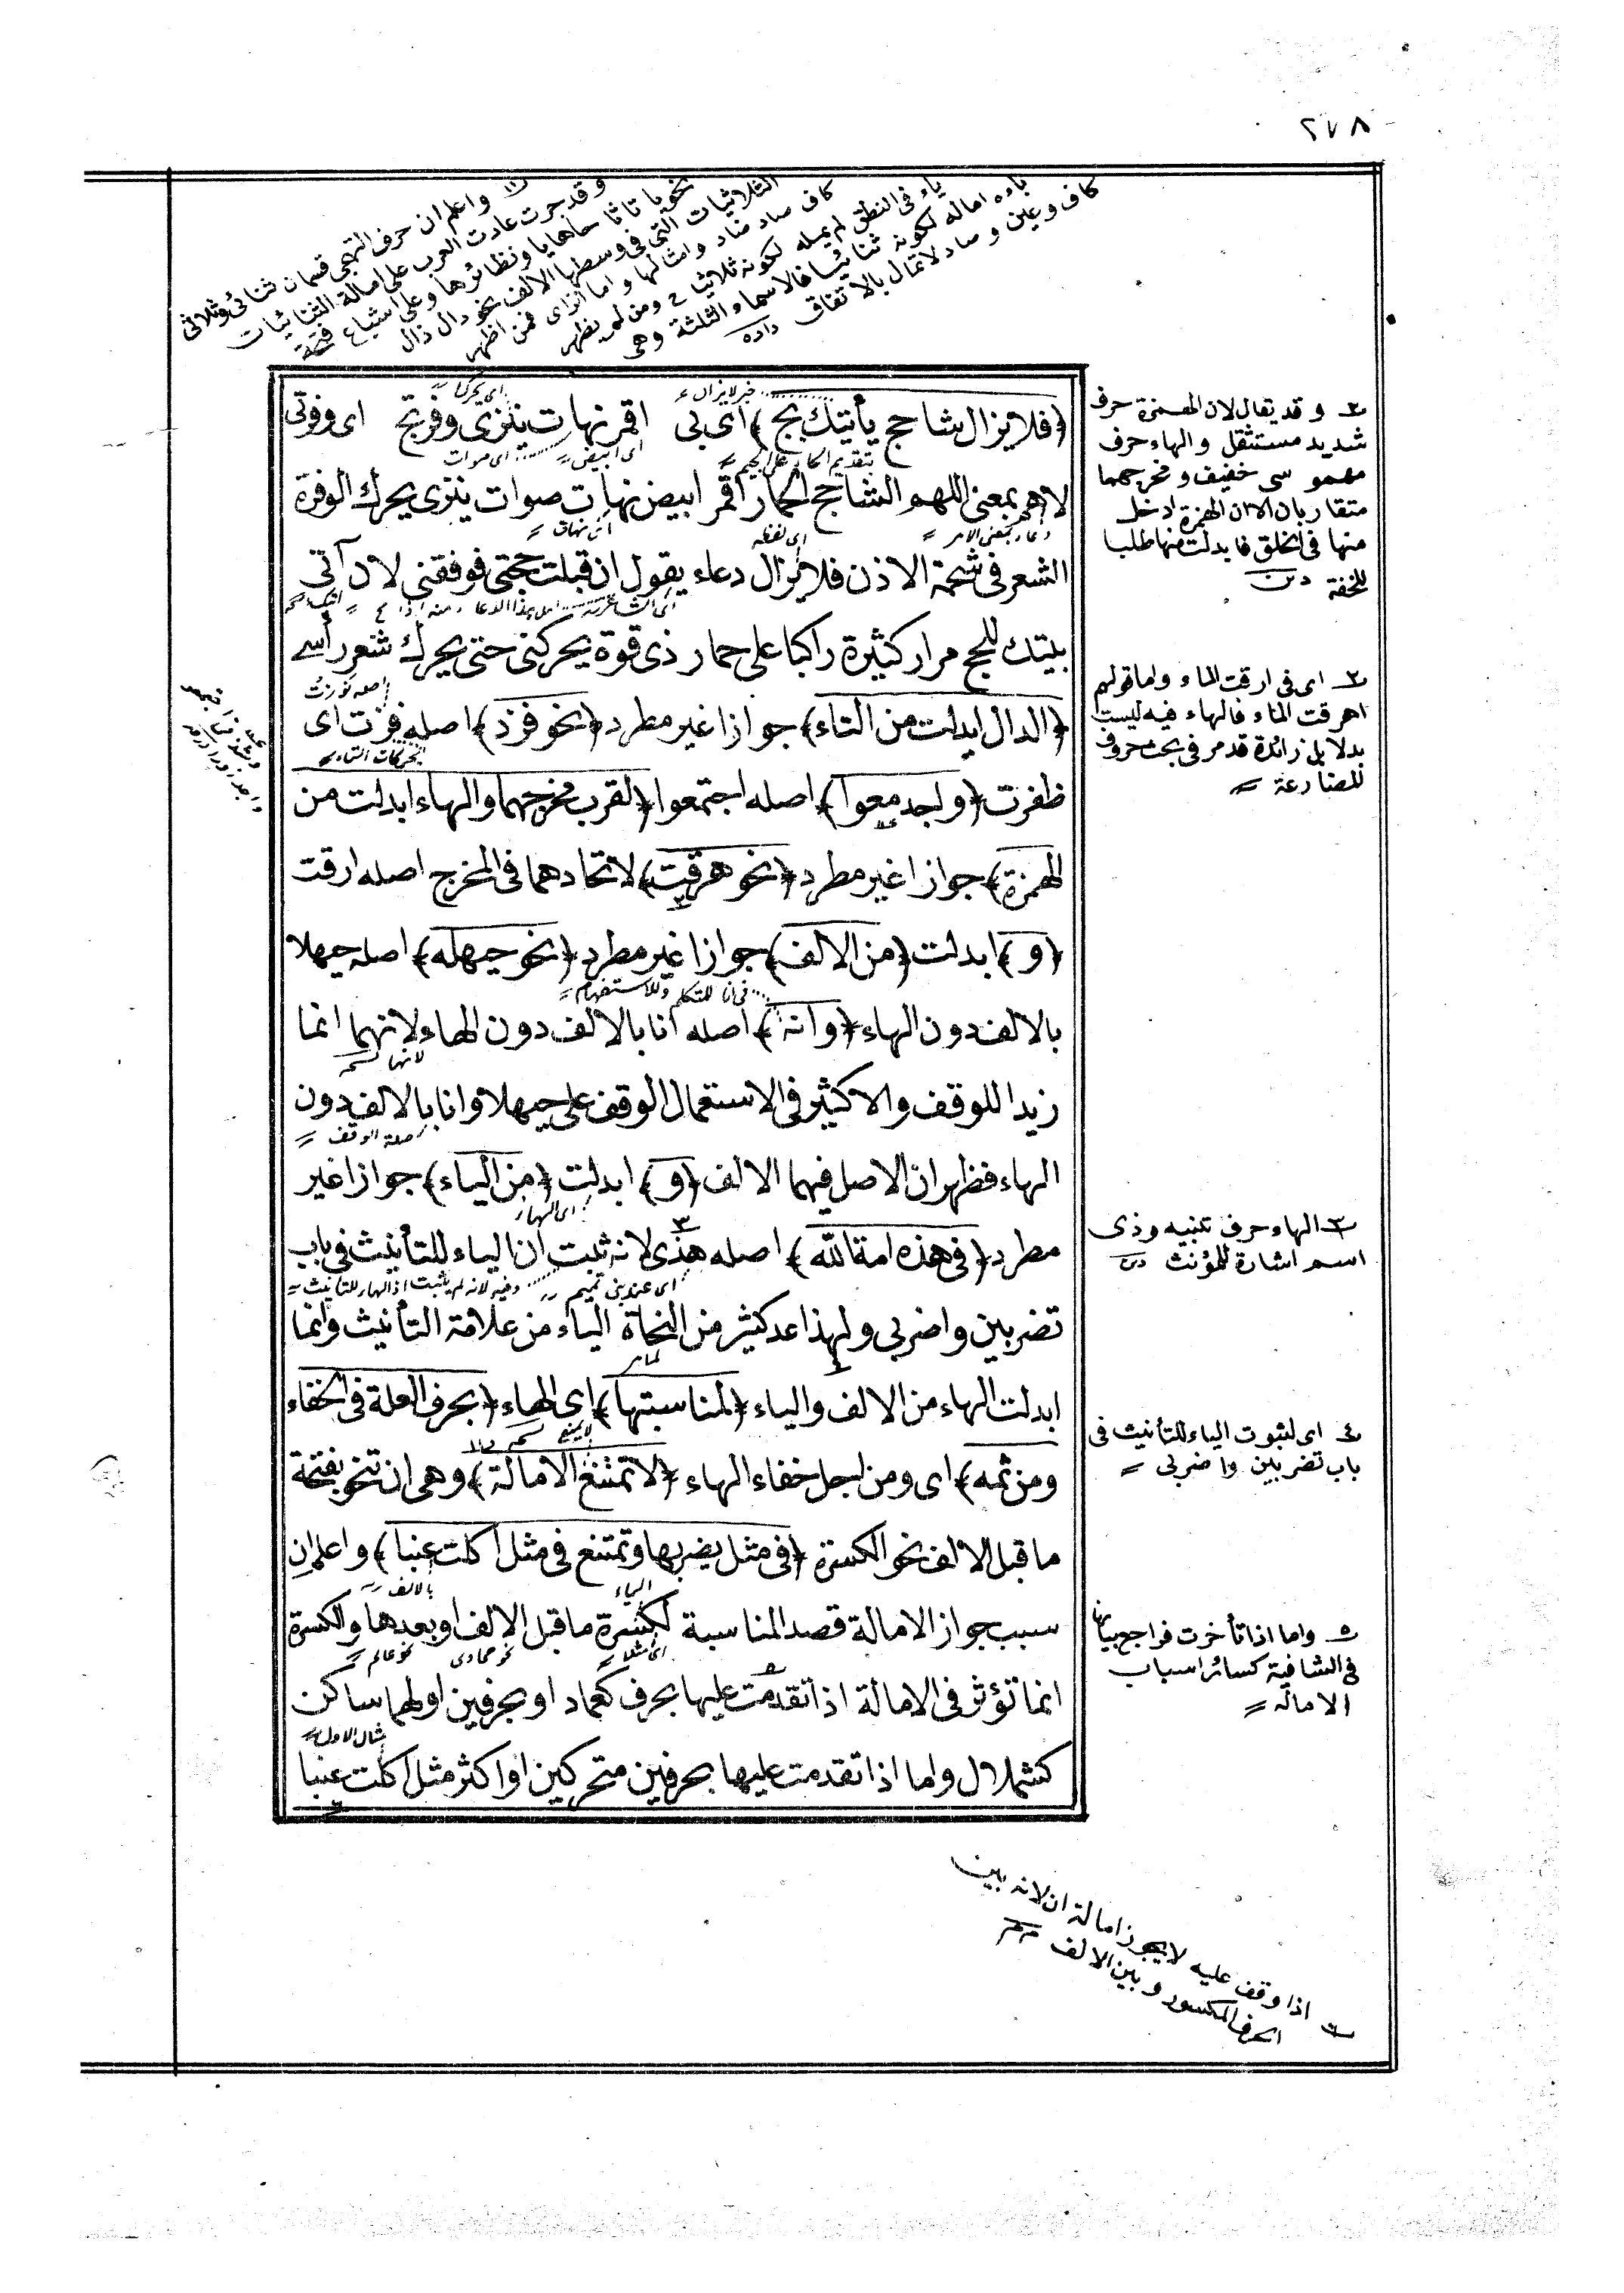 ٢٧٨
واعلم ان حرف التهجى قسمان ثنائى وثلاثى
وقد جرت عادت العرب على امالة الثنائيات
نحو با تا ثا حا ها يا ونظائرها وعلى اشباع فتحة
الثلاثيات التى فى وسطها الالف نحو دال ذال
كاف صاد ضاد وامثالها واما الزاى فمن اظهر
ياء فى النطق لم يمله لكونه ثلاثيا ومن لم يظهر
ياءه اماله لكونه ثنائيا فالاسماء الثلثة وهى
كاف وعين وصاد لا تمال بالاتفاق داده
خبر لا يزال
اى يحركها
(فلا يزال شاحج يأتيك بج) اى بى اقمر نهات ينزى وفرتج اى وفرتى
بتقديم الحاء على الجيم
اى ابيض
اى صوات
لاهم بمعنى اللهم الشاحج الحمار اقمر ابيض نهات صوات ينزى يحرك الوفرة
دعاء بمعنى الامر
اى لفظه
اى نهاق
الشعر فى شحمة الاذن فلا يزال دعاء يقول ان قبلت حجتى فوفقنى لان آتى
بيتك للحج مرار كثيرة راكبا على حمار ذى قوة يحركنى حتى يحرك شعر رأسى
اصله فوزت
(الدال ابدلت من التاء) جوازا غير مطرد (نحو فزد) اصله فزت اى
بحركات التاء
ظفرت (واجدمعوا) اصله اجتمعوا (لقرب مخرجهما والهاء ابدلت من
الهمزة) جوازا غير مطرد (نحو هرقت) لاتحادهما فى المخرج اصله ارقت
(و) ابدلت (من الالف) جوازا غير مطرد (نحو حيهله) اصله حيهلا
فى انا للمتكلم وللاستفهام
بالالف دون الهاء (وانه) اصله انا بالالف دون الهاء لانهما انما
زيدا للوقف والاكثر فى الاستعمال الوقف على حيهلا وانا بالالف دون
صلة الوقف
الهاء فظهر ان الاصل فيهما الالف (و) ابدلت (من الياء) جوازا غير
اى الهاء
مطرد (فى هذه امة الله) اصله هذى ٣ لانه ثبت ان الياء للتأنيث فى باب
اى عند بنى تميم
وفيه لانه لم يثبت اذ الهاء للتانيث
تضربين واضربى ولهذا عد كثير من النحاة الياء من علامة التأنيث وانما
ابدلت الهاء من الالف والياء (لمناسبتها) اى الهاء (بحرف العلة فى الخفاء
ومن ثمه) اى ومن اجل خفاء الهاء (لا تمتنع الامالة) وهى ان تنحو بفتحة
ما قبل الالف نحو الكسرة (فى مثل يضربها وتمتنع فى مثل اكلت عنبا) واعلم ان
الياء
بالالف
سبب جواز الامالة قصد المناسبة لكسرة ما قبل الالف او بعدها والكسرة
اى مثلا
نحو عالم
انما تؤثر فى الامالة اذا تقدمت عليها بحرف كعماد او بحرفين اولهما ساكن
مثال الاول
كشملال واما اذا تقدمت عليها بحرفين متحركين او اكثر مثل اكلت عنبا
٢ وقد يقال لان الهمزة حرف
شديد مستثقل والهاء حرف
مهموسى خفيف ومخرجهما
متقاربان الا ان الهمزة ادخل
منها فى الحلق فابدلت منها طلبا
للخفة
٢ اى فى ارقت الماء واما قولهم
اهرقت الماء فالهاء فيه ليست
بدلا بل زائدة قد مر فى بحث حروف
المضارعة
٣ الهاء حرف تنبيه وذى
اسم اشارة للمؤنث
٤ اى لثبوت الياء للتأنيث فى
باب تضربين واضربى
٥ واما اذا تأخرت فراجع بيانها
فى الشافية كسائر اسباب
الامالة
٦ اذا وقف عليه لا يجوز امالة ان لانه بين
الحرف المكسور وبين الالف